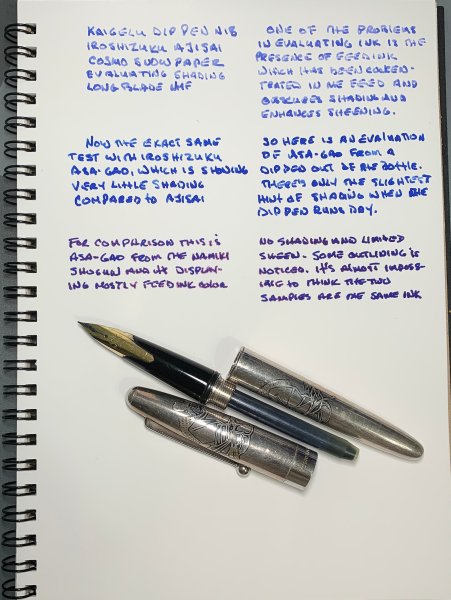 KAIGELU DIP PEN NIB
IROSHIZUKU AJISAI
COSMO SNOW PAPER
EVALUATING SHADING
LONG BLADE
ONE OF THE PROBLEMS
IN EVALUATING INK IS THE
PRESENCE OF FEED INK
WHICH HAS BEEN CONCEN-
TRATED IN THE FEED AND
OBSCURES SHADING AND
ENHANCES SHEENING.
NOW THE EXACT SAME
TEST WITH IROSHIZUKU
ASA-GAO, WHICH IS SHOWING
VERY LITTLE SHADING
COMPARED TO AJISAI
SO HERE IS AN EVALUATION
OF ASA-GAO FROM A
DIP PEN OUT OF THE BOTTLE.
THERE'S ONLY THE SLIGHTEST
HINT OF SHADING WHEN THE
DIP PEN RUNS DRY.
FOR COMPARISON THIS IS
ASA-GAO FROM THE NAMIKI
SHOGUN AND IT DISPLAY-
ING MOSTLY FEED INK COLOR
NO SHADING AND LIMITED
SHEEN. SOME OUTLINING IS
NOTICED. IT'S ALMOST IMPOSS-
IBLE TO THINK THE TWO
SAMPLES ARE THE SAME INK